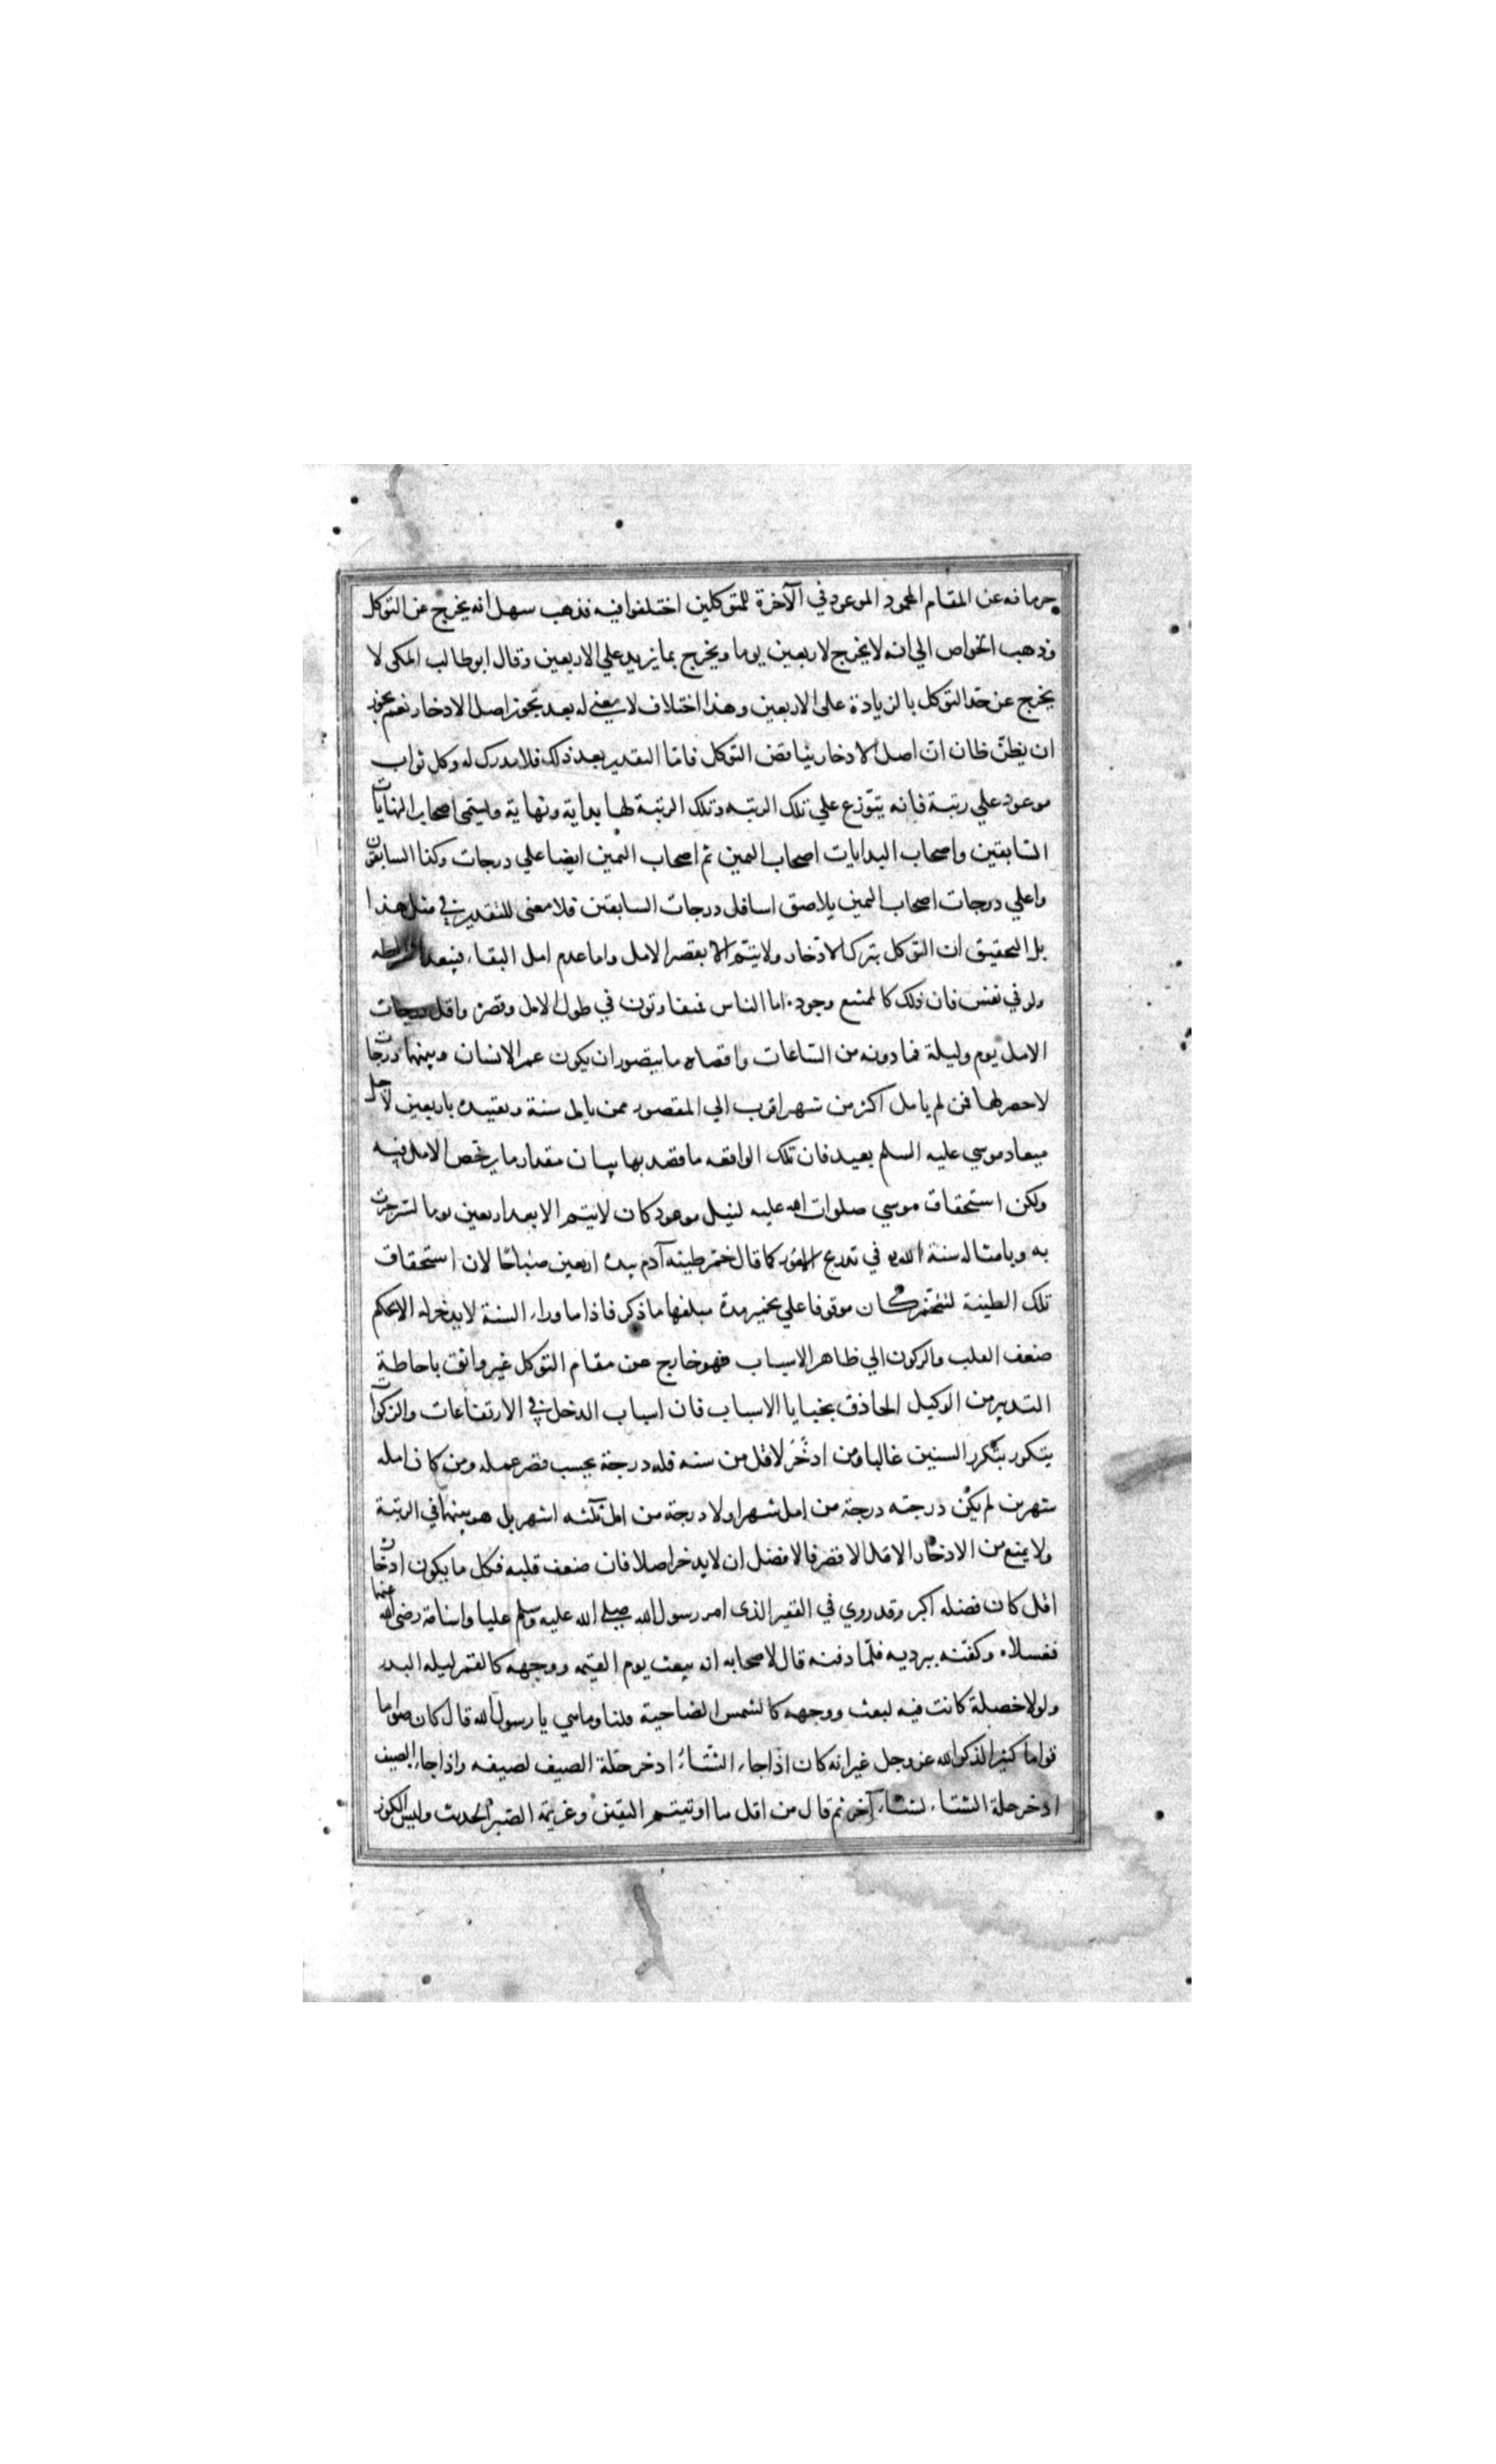 حرمانه عن المقام المحمود الموعود في الآخرة للمتوكلين اختلفوا فيه فذهب سهل انه يخرج عن التوكل
وذهب الخواص الي انه لا يخرج لاربعين يوما ويخرج بما يزيد علي الاربعين وقال ابو طالب المكى لا
يخرج عن حد التوكل بالزيادة على الاربعين وهذا اختلاف لا معني له بعد تجوز اصل الادخار نعم يجوز
ان يظنّ ظان انّ اصل الادخار يناقض التوكل فامّا التقدير بعد ذلك فلا مدرك له وكل ثواب
موعود علي رتبة فانه يتوّزع علي تلك الرتبه وتلك الرتبة لها بداية ونهاية ويسمى اصحاب النهايات
السّابقين واصحاب البدايات اصحاب اليمين ثم اصحاب اليمين ايضا علي درجات وكذا السابقون
واعلي درجات اصحاب اليمين يلاصق اسافل درجات السابقين فلا معنى للتقدير في مثل هذا
بل التحقيق ان التوكل بترك الادّخار ولا يتيم الا بقصر الامل واما عدم امل البقاء فيبعد اشتراطه
ولو في نفس فان ذلك كالممتنع وجوده اما الناس فمتفاوتون في طول الامل وقصره واقل درجات
الامل يوم وليلة فما دونه من السّاعات واقصاه ما يتصور ان يكون عمر الانسان وبينهما درجات
لا حصر لها فمن لم يامل اكثر من شهر اقرب الي المقصود ممن يامل سنة وتقييده باربعين لاجل
ميعاد موسي عليه السلم بعيد فان تلك الواقعه ما قصد بها بيان مقدار ما يرخص الامل فيه
ولكن استحقاق موسي صلوات الله عليه لنيل موعود كان لا يتيم الا بعد اربعين يوما لسرجرت
به وبامثاله سنة الله في تدريج الامور كما قال خمّر طينه آدم بيده اربعين صباحًا لان استحقاق
تلك الطينة لتتخمّر كان موقوفا علي تخمير مدة مبلغها ما ذكر فاذا ما وراء السنة لا يدخر له الا بحكم
ضعف القلب والركون الي ظاهر الاسباب فهو خارج عن مقام التوكل غير واثق باحاطة
التدبير من الوكيل الحاذق بخبايا الاسباب فان اسباب الدخل في الارتفاعات والزكوات
يتكرر بتكرر السنين غالبا ومن ادخّر لاقل من سنه فله درجة بحسب قصر عمله ومن كان امله
شهرين لم يكن درجته درجة من امل شهرا ولا درجة من امل ثلثه اشهر بل هو بينهما في الرتبة
ولا يمنع من الادخار الا قصر الامل فالافضل ان لا يدخر اصلا فان ضعف قلبه فكل ما يكون ادخاره
اقل كان فضله اكبر وقد روي في الفقير الذى امر رسول الله صلي الله عليه وسلم عليا واسامة رضى الله عنهما
فغسلاه وكفّنه ببرديه فلمّا دفنه قال لاصحابه انه يبعث يوم القيمه ووجهه كالقمر ليله البدر
ولولا خصلة كانت فيه لبعث ووجهه كالشمس الضاحية قلنا وما هي يا رسول الله قال كان صوّاما
قواما كثير الذكر لله عز وجل غير انه كان اذا جاء الشتاء ادخر حلّة الصيف لصيفه واذا جاء الصيف
ادخر حلة الشتاء لشتاء آخر ثم قال من اقل ما اوتيتم اليقين وعزيمة الصّبر الحديث وليس الكوز